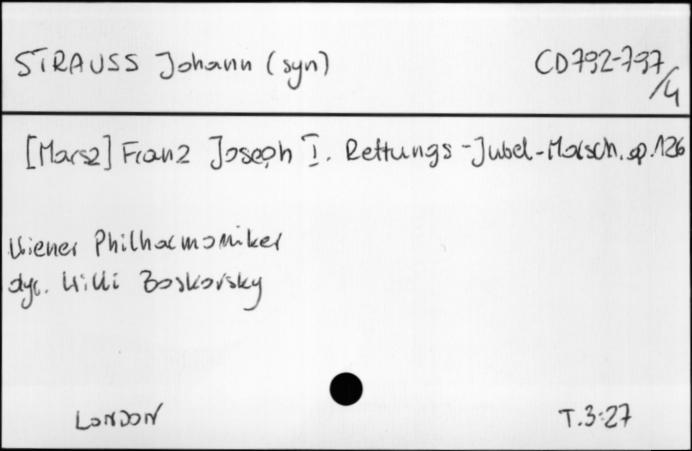 STRAUSS Johann (syn)
CD792-797/4
[Marsz] Franz Joseph I. Rettungs-Jubel-Marsch. op.126
Wiener Philharmoniker
dyr. Willi Boskovsky
LONDON
T.3:27